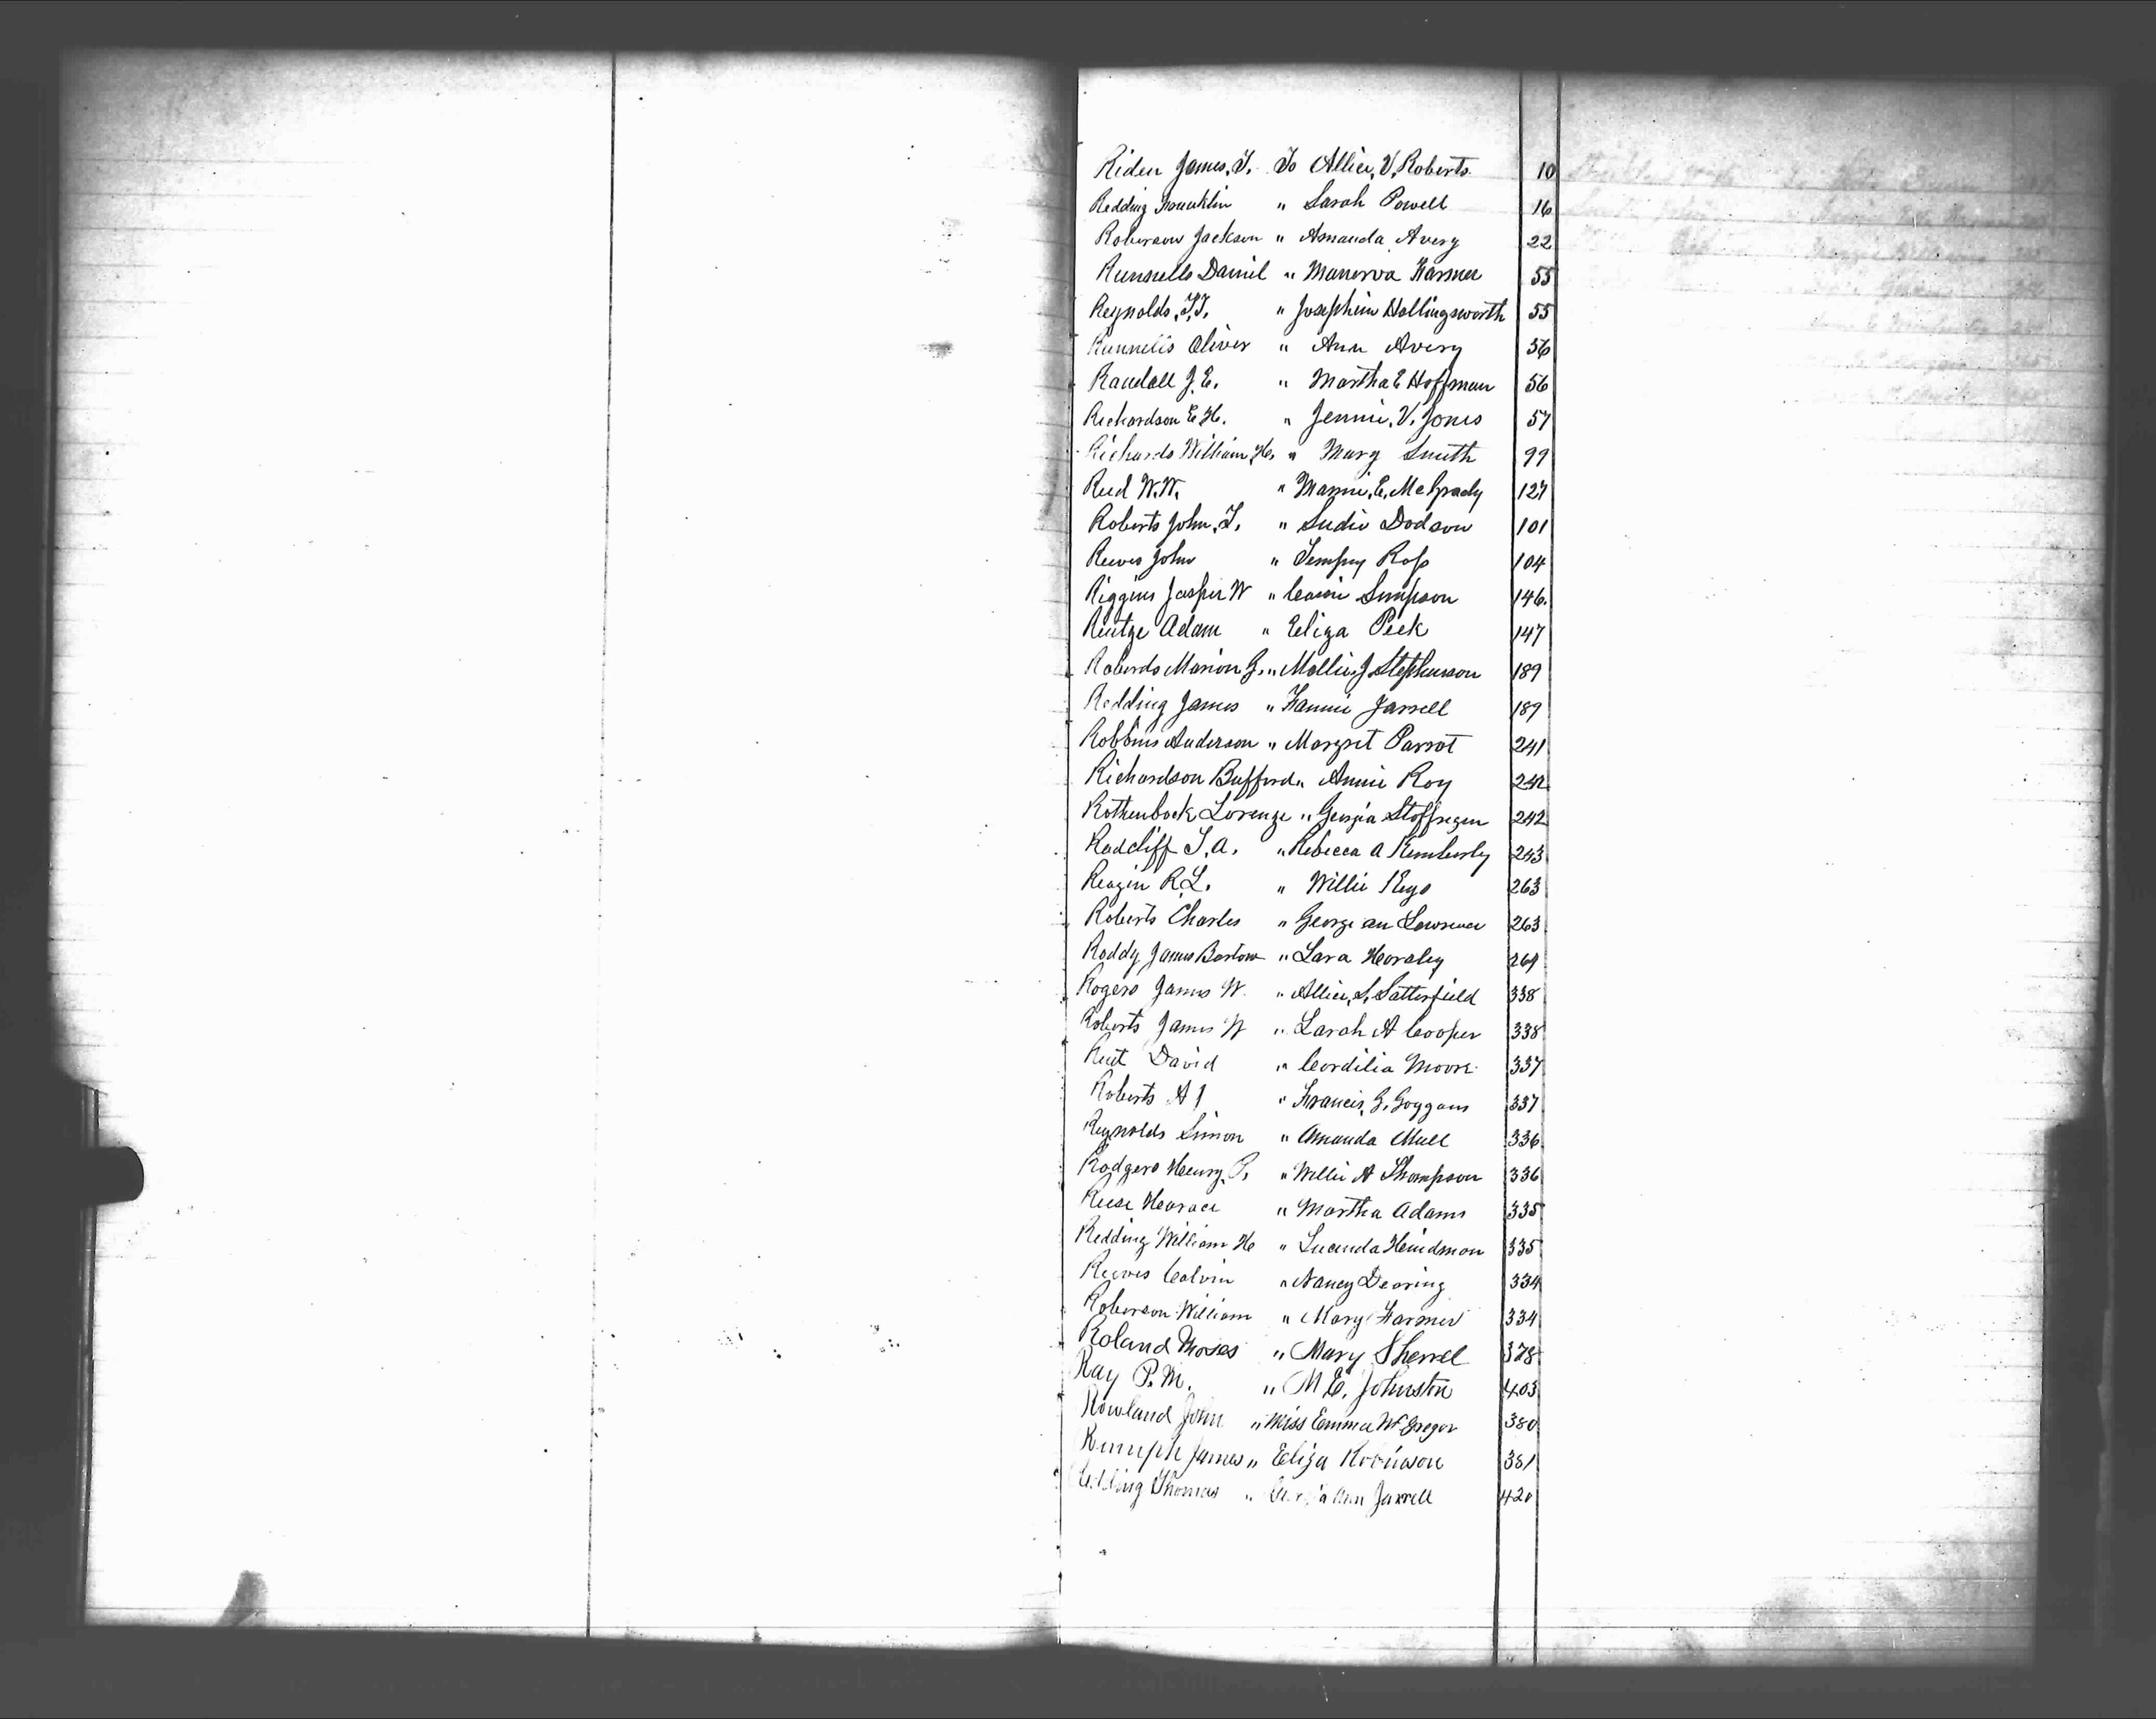 Riden James, T. To Allice, V. Roberts 10
Redding Franklin " Sarah Powell 16
Roberson Jackson " Amanda Avery 22
Runnells Daniel " Manerva Farmer 55
Reynolds, T.T. " Josephine Hollingsworth 55
Runnells Oliver " Ann Avery 56
Randall J.E. " Martha E Hoffman 56
Richardson E.H. " Jennie, V. Jones 57
Richards William, H. " Mary Smith 99
Reed W.W. " Mamie, E, McGrady 127
Roberts John, T. " Sudie Dodson 101
Reeves John " Tempy Ross 104
Riggins Jasper W " Simpson 146.
Adam " Eeliza Peek 147
Roberds Marion " Mollie J Stephenson 189
Redding James " Fannie Jarrell 189
Robbins Anderson " Margret Parrot 241
Richardson Bufford " Annie Roy 242
Rothenbock Lorenze " Georgia Stoffregen 242
Radcliff T.A. " Rebecca A Kimberly 243
Reagin R.L. " Willie Keys 263
Roberts Charles " George an Lawrence 263
Roddy James Bartow " Lara Horsley 264
Rogers James W. " Allice, S, Satterfield 338
Roberts James W " Sarah A Cooper 338
David " Cordilia Moore 337
Roberts A J " Francis, G. Goggans 337
Reynolds Simon " Amanda Mull 336
Rodgers Henry, P. " Willie A Thompson 336
Reese Horace " Martha Adams 335
Redding William H " Lucinda Heindmon 335
Reeves Calvin " Nancy Dearing 334
Roberson William " Mary Farmer 334
Roland Moses " Mary Sherrel 378
Ray P.M. " M.E. Johnston 403
Rowland John " Miss Emma McGregor 380
Rumph James " Eliza Robinson 381
Redding Thomas " Ann Jarrell 420